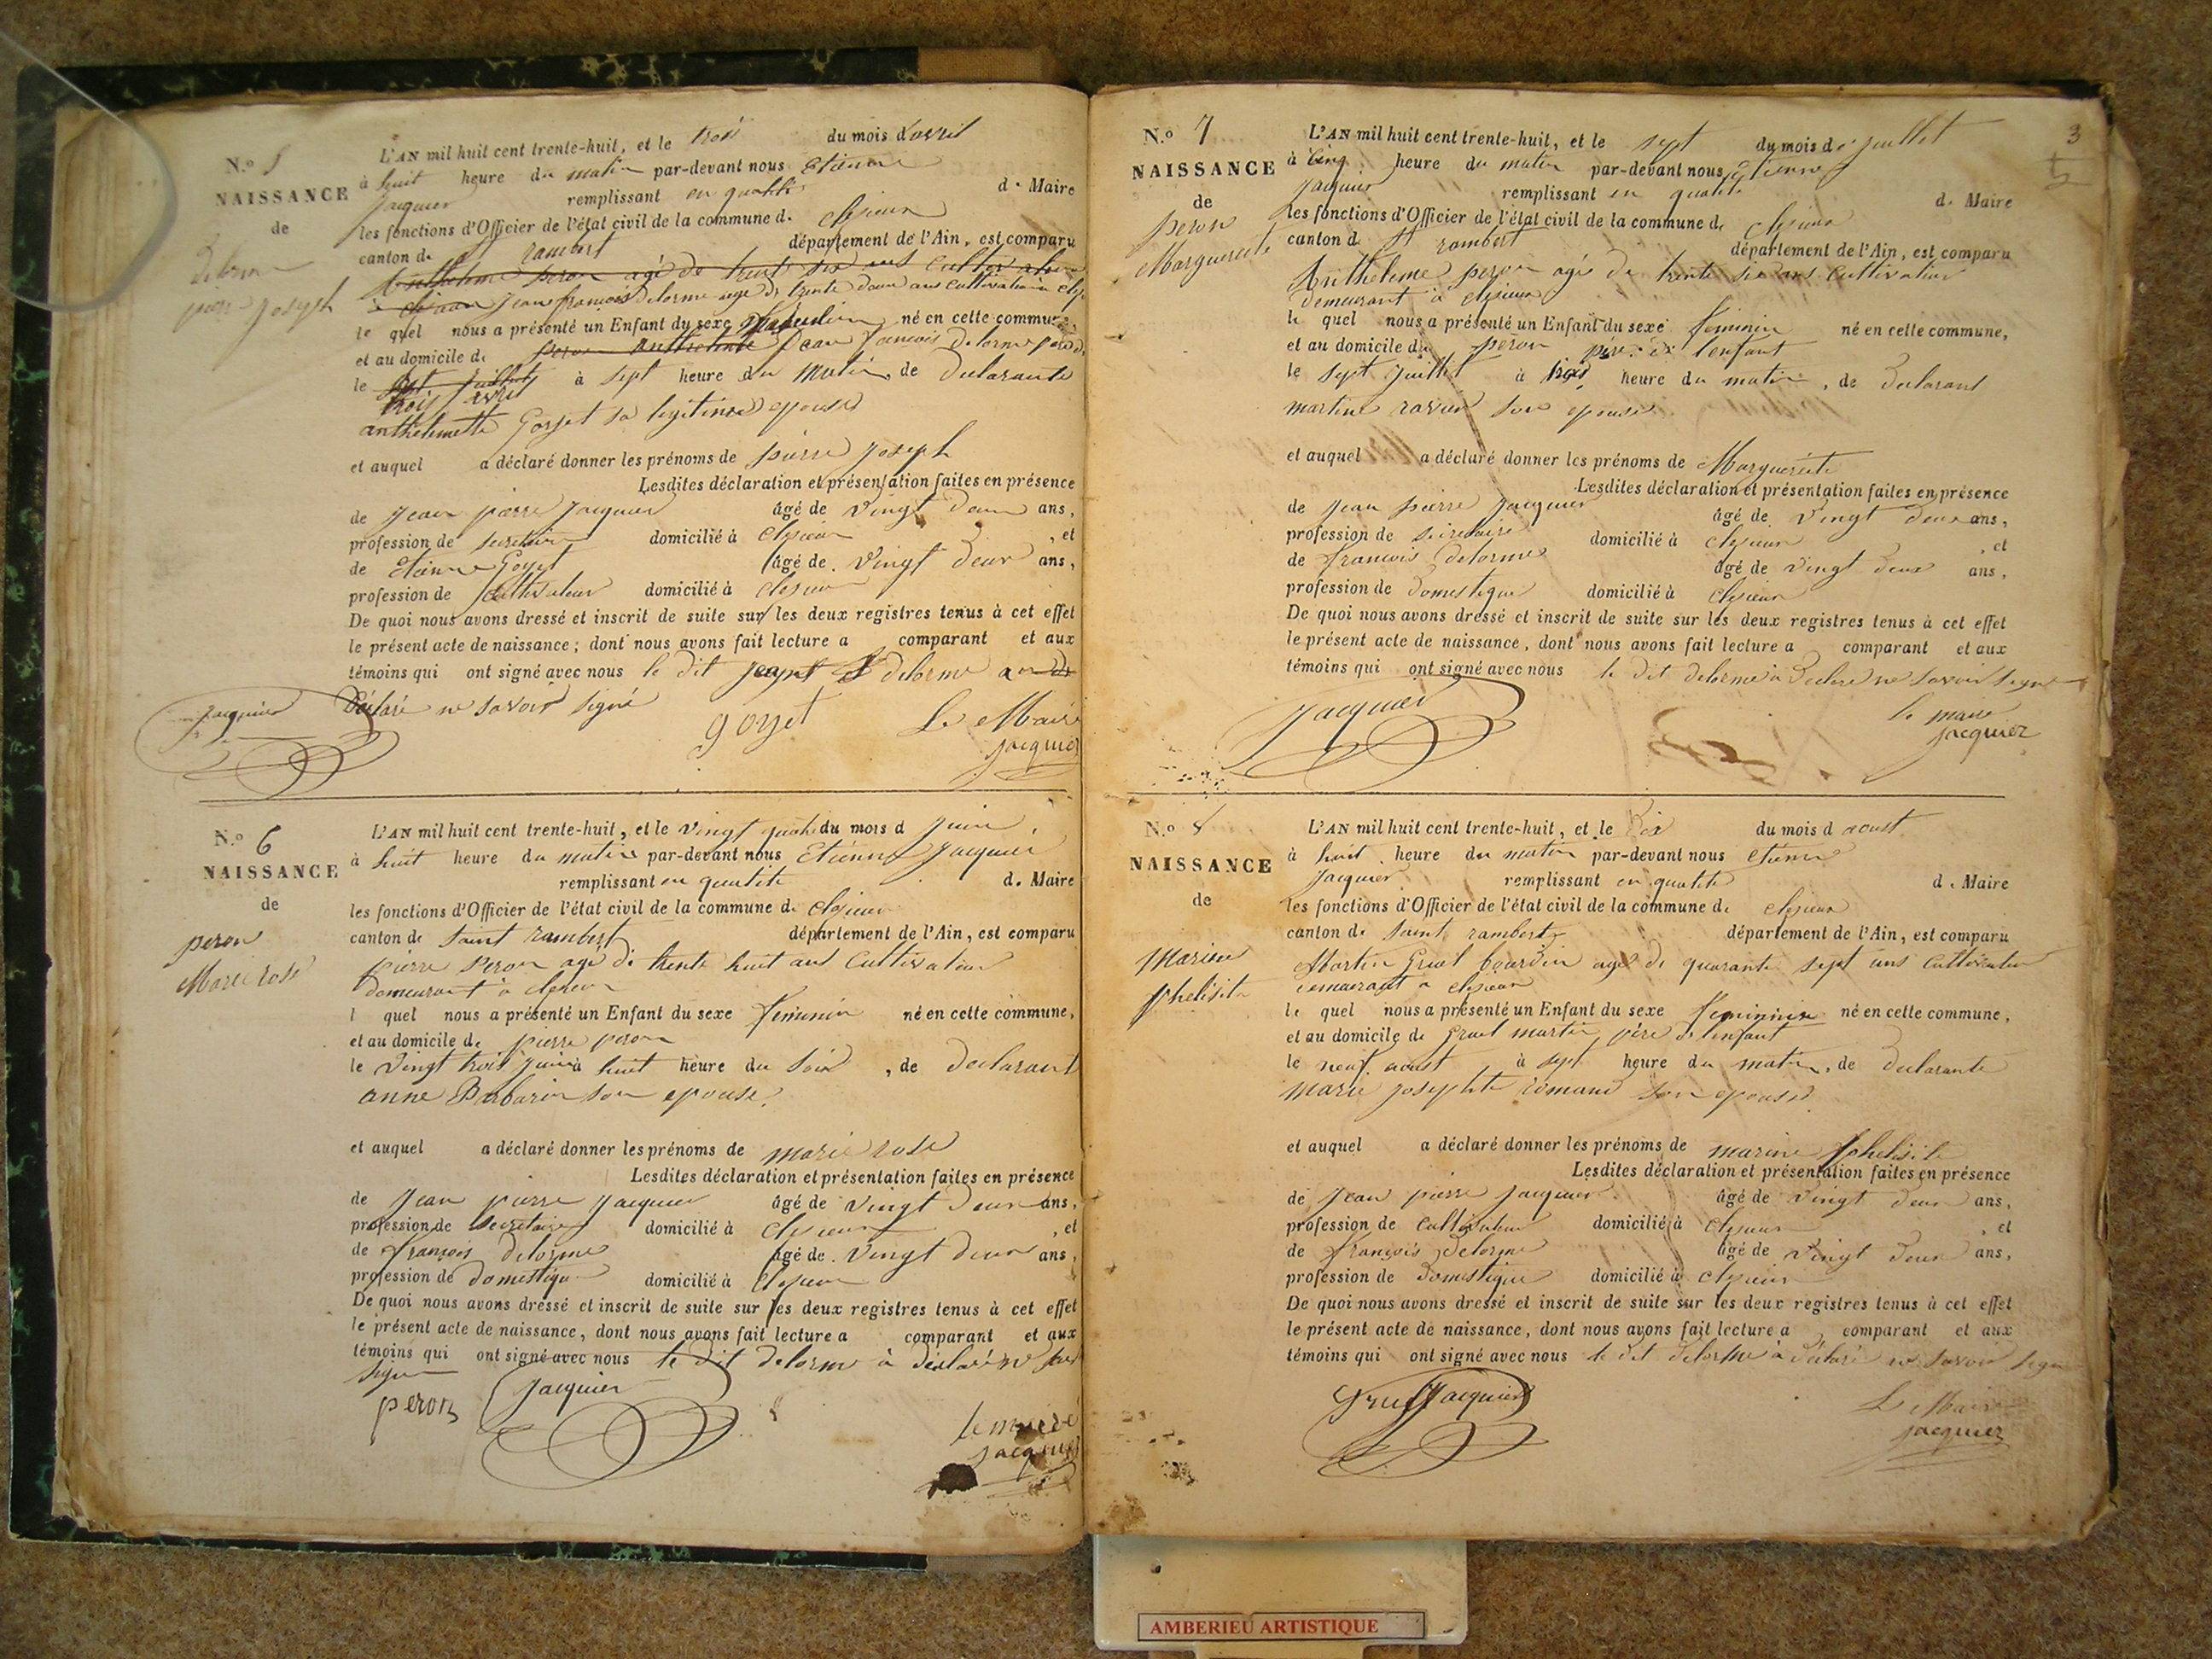 N.o 5
NAISSANCE
de
Delorme
pierre Joseph
L'AN mil huit cent trente-huit, et le trois du mois d'avril
à huit heure du matin par-devant nous Etienne
Jacquier remplissant en qualité d. Maire
les fonctions d'Officier de l'état civil de la commune d. Cleyzieu
canton d. St rambert département de l'Ain, est comparu
Anthelme peron agé de trente six ans Cultivateur
à Jean francois Delorme age de trente deux ans cultivateur à
le quel nous a présenté un Enfant du sexe Masculin né en cette commune,
et au domicile d. peron Anthelme Jean francois Delorme
le sept juillet à sept heure du matin, de Declarante
trois avril
anthelmette Goyet sa legitime epouse
et auquel a déclaré donner les prénoms de pierre Joseph
Lesdites déclaration et présentation faites en présence
de Jean pierre Jacquier âgé de Vingt deux ans,
profession de secretaire domicilié à Clesieu, et
de Etienne Goyet âgé de Vingt deux ans,
profession de Cultivateur domicilié à Clesieu
De quoi nous avons dressé et inscrit de suite sur les deux registres tenus à cet effet
le présent acte de naissance; dont nous avons fait lecture a comparant et aux
témoins qui ont signé avec nous le dit delorme a
Déclaré ne savoir signé
Jacquier goyet Le Maire
Jacquier
N.o 6
NAISSANCE
de
peron
Marie rose
L'AN mil huit cent trente-huit, et le vingt quatre du mois d juin,
à huit heure du matin par-devant nous Etienne Jacquier
remplissant en qualité d. Maire
les fonctions d'Officier de l'état civil de la commune d. Clesieu
canton de Saint rambert département de l'Ain, est comparu
pierre Peron agé de trente huit ans Cultivateur
Demeurant à clesieu
l quel nous a présenté un Enfant du sexe feminin né en cette commune,
et au domicile d. pierre peron
le vingt trois juin à huit heure du soir, de declarant
anne Barbarin son epouse.
et auquel a déclaré donner les prénoms de marie rose
Lesdites déclaration et présentation faites en présence
de Jean pierre Jacquier âgé de vingt deux ans,
profession de secretaire domicilié à Clesieu, et
de françois Delorme âgé de Vingt deux ans,
profession de domestique domicilié à Clesieu
De quoi nous avons dressé et inscrit de suite sur les deux registres tenus à cet effet
le présent acte de naissance, dont nous avons fait lecture a comparant et aux
témoins qui ont signé avec nous le dit delorme à déclaré ne
signe
peron Jacquier
le maire
jacquier
3
5
N.o 7
NAISSANCE
de
peron
Marguerite
L'AN mil huit cent trente-huit, et le sept du mois de juillet
à Cinq heure du matin par-devant nous Etienne
Jacquier remplissant en qualité d. Maire
les fonctions d'Officier de l'état civil de la commune d. Clesieu
canton d. St rambert département de l'Ain, est comparu
Anthelme peron agé de trente six ans Cultivateur
Demeurant à Clesieu
le quel nous a présenté un Enfant du sexe feminin né en cette commune,
et au domicile du peron père de l'enfant
le sept juillet à trois heure du matin, de Declarant
martine ravier son epouse
et auquel a déclaré donner les prénoms de Marguerite
Lesdites déclaration et présentation faites en présence
de Jean pierre Jacquier âgé de vingt deux ans,
profession de secretaire domicilié à clesieu, et
de francois delorme âgé de vingt deux ans,
profession de Domestique domicilié à Clesieu
De quoi nous avons dressé et inscrit de suite sur les deux registres tenus à cet effet
le présent acte de naissance, dont nous avons fait lecture a comparant et aux
témoins qui ont signé avec nous le dit delorme à Declaré ne savoir signe
Jacquier le maire
jacquier
N.o 8
NAISSANCE
de
Marine
phelisite
L'AN mil huit cent trente-huit, et le Dix du mois d aoust
à huit heure du matin par-devant nous etienne
Jacquier remplissant en qualité d. Maire
les fonctions d'Officier de l'état civil de la commune d. clesieu
canton d. Saint rambert département de l'Ain, est comparu
Martin Gruel bourdin agé de quarante sept ans Cultivateur
demeurant a clesieu
le quel nous a présenté un Enfant du sexe feminine né en cette commune,
et au domicile de Gruel martin père de l'enfant
le neuf aoust à sept heure du matin, de Declarante
marie josephte romand son epouse
et auquel a déclaré donner les prénoms de marine phelisite
Lesdites déclaration et présentation faites en présence
de Jean pierre Jacquier âgé de vingt deux ans,
profession de cultivateur domicilié à Clesieu, et
de francois Delorme âgé de vingt deux ans,
profession de Domestique domicilié à Clesieu
De quoi nous avons dressé et inscrit de suite sur les deux registres tenus à cet effet
le présent acte de naissance, dont nous avons fait lecture a comparant et aux
témoins qui ont signé avec nous le dit delorme a déclaré ne savoir signe
Gruel Jacquier Le Maire
jacquier
AMBERIEU ARTISTIQUE